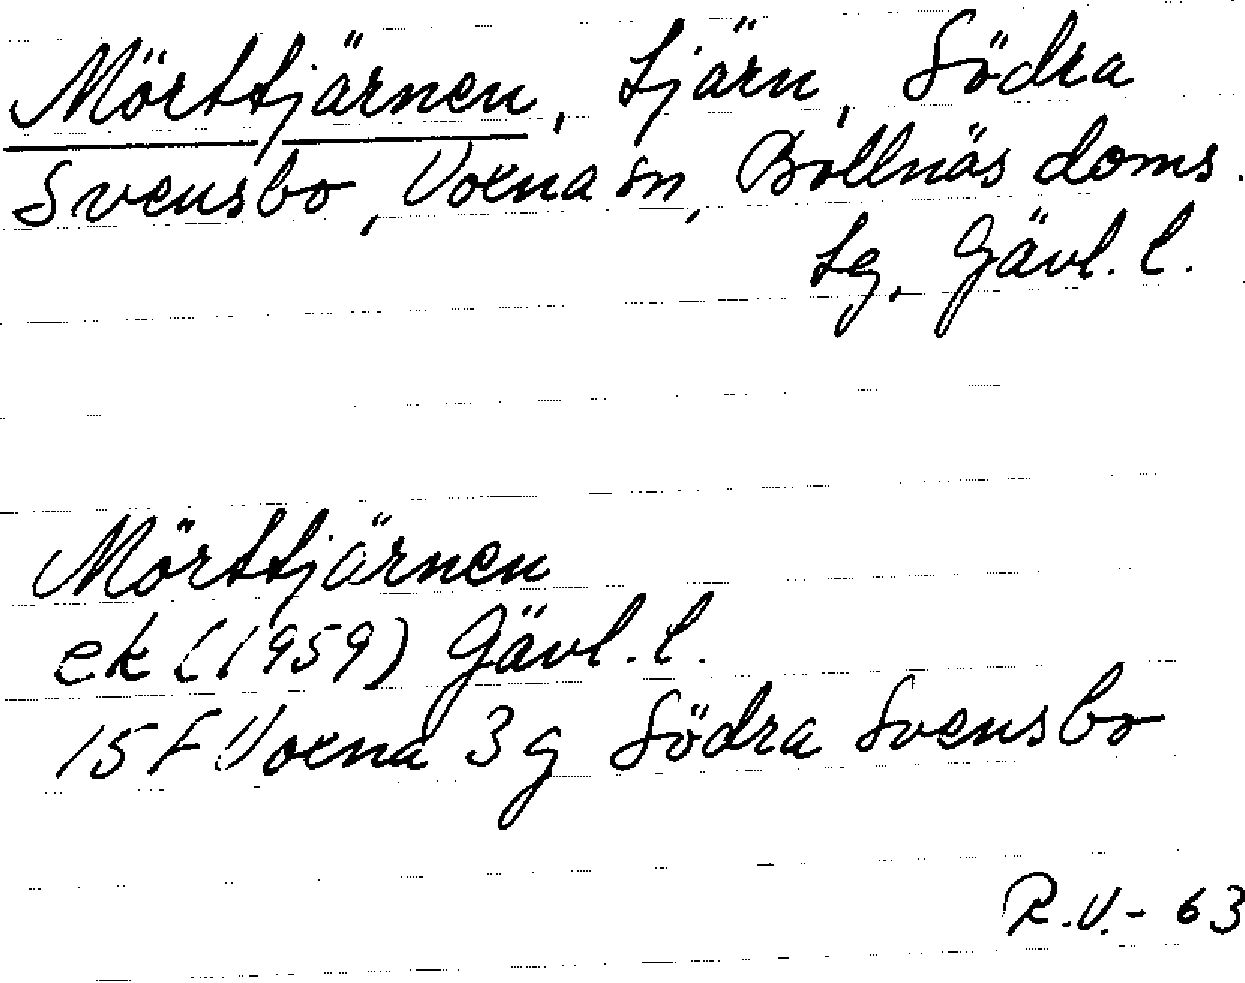 Mörttjärnen, tjärn, Södra
Svensbo, Voxna sn, Bollnäs doms.
sg, Gävl. l.
Mörttjärnen
ek (1959) Gävl. l.
15 F Voxna 3g Södra Svensbo
R.V.- 63